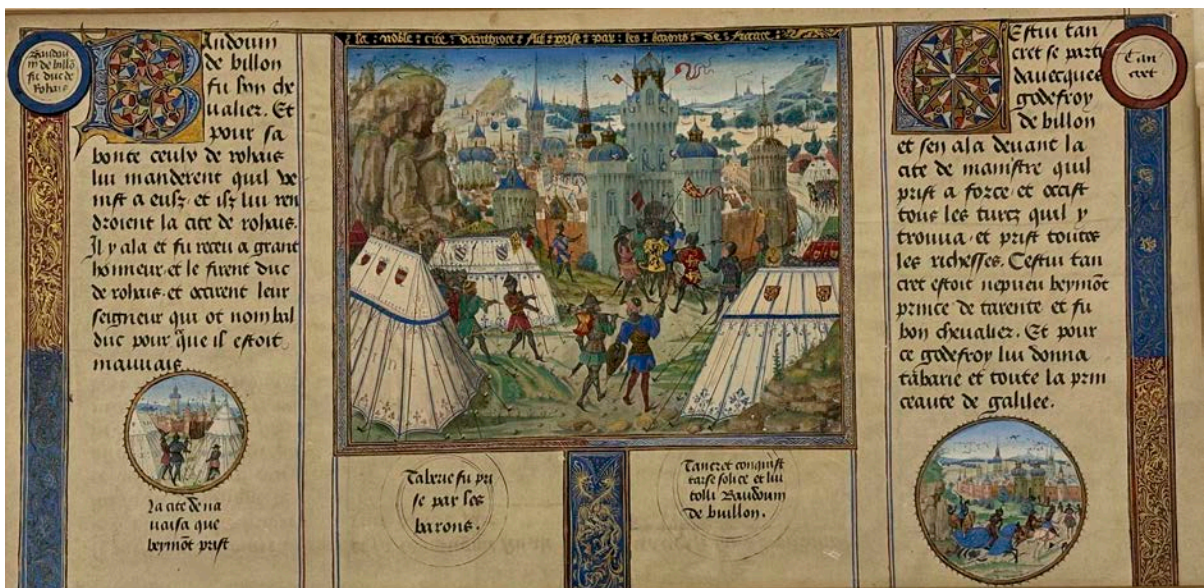 Baudoui
n de billõ
fu duc de
Rohais
Baudouin
de billon
fu bon che
ualier. Et
pour sa
bonte ceulx de rohais
lui manderent quil ve
nist a eulz. et ilz lui ren
droient la cite de rohais.
Il y ala et fu receu a grant
honneur. et le firent duc
de rohais. et occirent leur
seigneur qui ot nom bal
duc pour que il estoit
mauuais.
La cite de na
uaisa que
beymõt prist
la : noble : cite : danthioce : fut : prise : par : les : barons : de : france :
Taberie fu pri
se par les
barons.
Tancret conquist
tarse solice et lui
tolli Baudouin
de buillon.
Cestui tan
cret se parti
dauecques
godefroy
de billon
et sen ala deuant la
cite de mamistre quil
prist a force. et occist
tous les turcz quil y
trouua. et prist toutes
les richesses. Cestui tan
cret estoit nepueu beymõt
prince de tarente et fu
bon cheualier. Et pour
ce godefroy lui donna
tabarie et toute la prin
ceaute de galilee.
Tan
cret